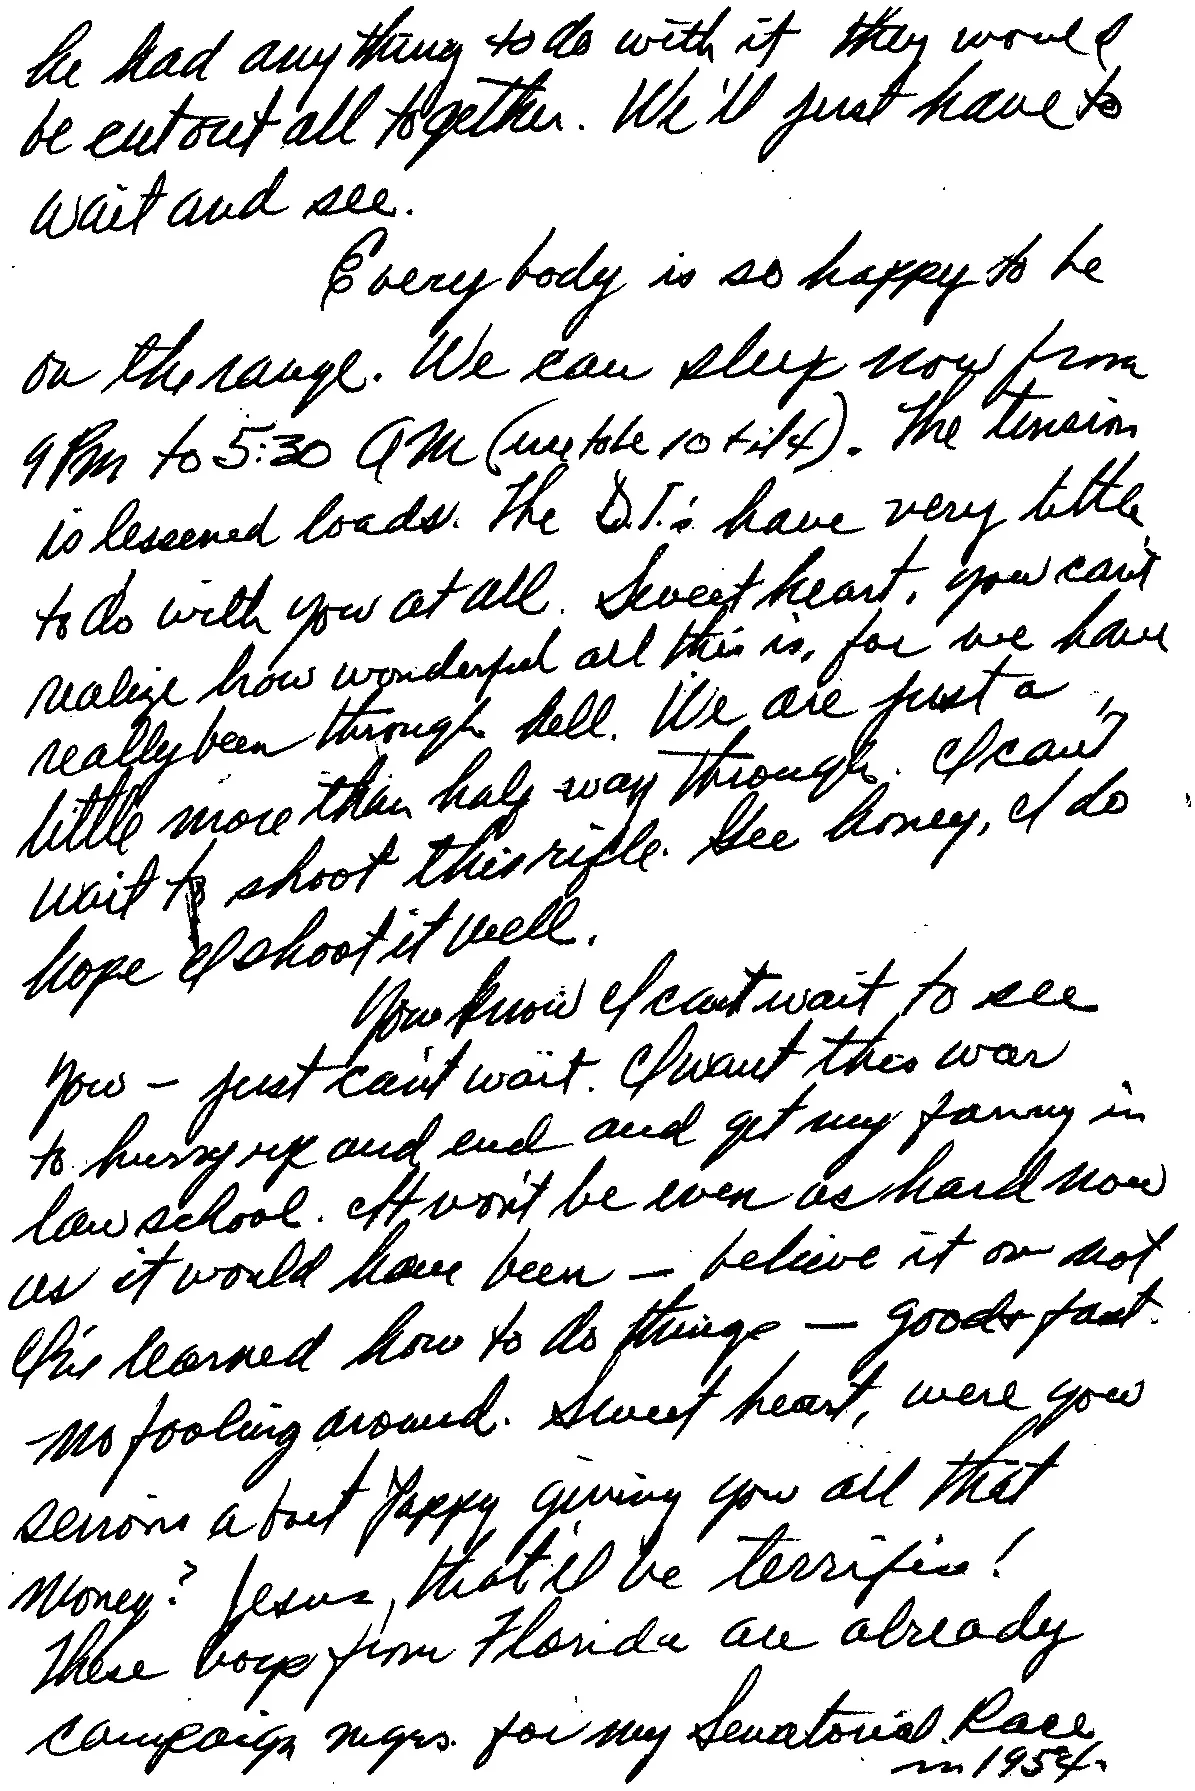 he had anything to do with it they would
be cut out all together. We'll just have to
wait and see.
Everybody is so happy to be
on the range. We can sleep now from
9 PM to 5:30 AM (use to be 10 til 4). The tension
is lessened loads. The D.I.'s have very little
to do with you at all. Sweetheart, you can't
realize how wonderful all this is, for we have
really been through hell. We are just a
little more than half way through. I can't
wait to shoot this rifle. Gee honey, I do
hope I shoot it well.
You know I can't wait to see
you – just can't wait. I want this war
to hurry up and end and get my fanny in
law school. It won't be even as hard now
as it would have been – believe it or not
I've learned how to do things – good & fast.
– no fooling around. Sweet heart, were you
serious about Pappy giving you all that
money? Jesus, that'll be terrific!
These boys from Florida are already
campaign mgrs. for my Senatorial Race
in 1954.